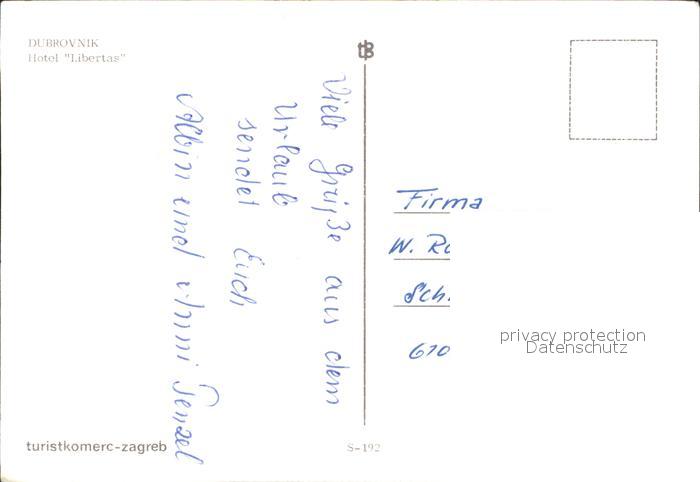 DUBROVNIK
Hotel "Libertas"
Viele Grüße aus dem
Urlaub
sendet Euch
Albin und
Firma
W.
Sch.
670
privacy protection
Datenschutz
turistkomerc-zagreb
S-192